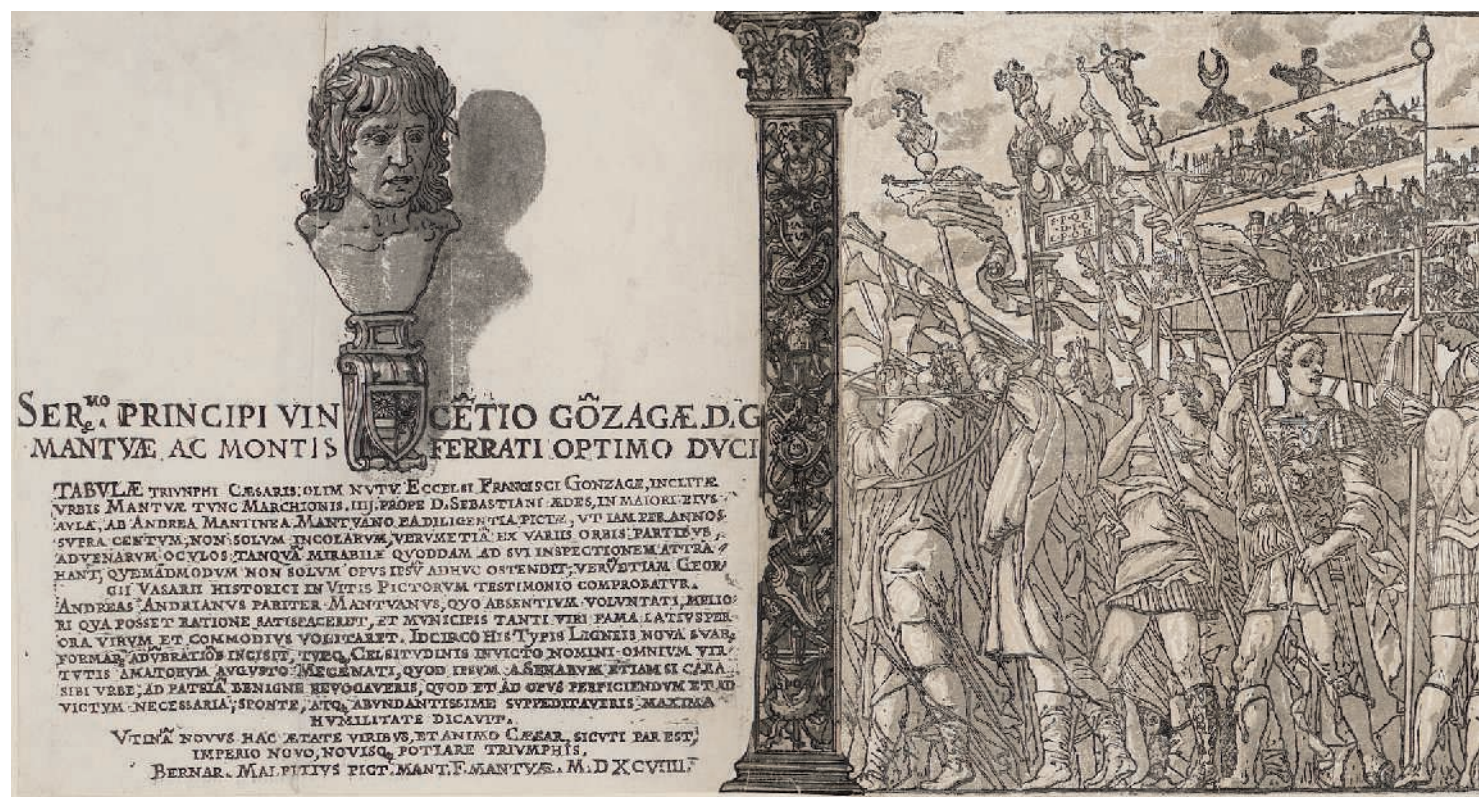 SER.mo PRINCIPI VINCẼTIO GÕZAGÆ.D.G
MANTVÆ AC MONTIS FERRATI OPTIMO DVCI
TABVLÆ TRIVNPHI CÆSARIS, OLIM NVTV ECCELSI FRANCISCI GONZAGÆ, INCLITÆ
VRBIS MANTVÆ TVNC MARCHIONIS. IIIJ. PROPE D. SEBASTIANI ÆDES, IN MAIORI EIVS
AVLA, AB ANDREA MANTINEA MANTVANO, EA DILIGENTIA PICTÆ, VT IAM PER ANNOS
SVPRA CENTVM, NON SOLVM INCOLARVM, VERVMETIÃ EX VARIIS ORBIS PARTIBVS,
ADVENARVM OCVLOS TANQVÃ MIRABILE QVODDAM AD SVI INSPECTIONEM ATTRA
HANT, QVEMADMODVM NON SOLVM OPVS IPSV̄ ADHVC OSTENDIT; VERV̄ETIAM GEOR
GII VASARII HISTORICI IN VITIS PICTORVM TESTIMONIO COMPROBATVR.
ANDREAS ANDRIANVS PARITER MANTVANVS, QVO ABSENTIVM VOLVNTATI, MELIO
RI QVA POSSET RATIONE SATISFACERET, ET MVNICIPIS TANTI VIRI FAMA LATIVS PER
ORA VIRVM ET COMMODIVS VOLITARET. IDCIRCO HIS TYPIS LIGNEIS NOVA
FORMAE ADVBRATIÕE INCISIT, CELSITVDINIS INVICTO NOMINI OMNIVM VIR
TVTIS AMATORVM AVGVSTO MECENATI, QVOD IPSVM A SENARVM ETIAM SI CARA
SIBI VRBE, AD PATRIÃ BENIGNE REVOCAVERIS, QVOD ET AD OPVS PERFICIENDVM ET AD
VICTVM NECESSARIA, SPONTE, ATQ, ABVNDANTISSIME SVPPEDITAVERIS MAXIMA
HVMILITATE DICAVIT.
VTINÃ NOVVS HAC ÆTATE VIRIBVS, ET ANIMO CÆSAR, SICVTI PAR EST,
IMPERIO NOVO, NOVISQ, POTIARE TRIVMPHIS.
BERNAR. MALPITIVS PICT. MANT. F. MANTVÆ. M. D XCVIIII.